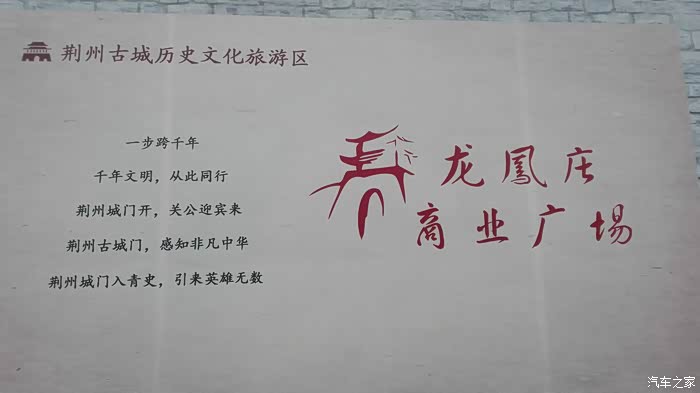 荆州古城历史文化旅游区
一步跨千年
千年文明，从此同行
荆州城门开，关公迎宾来
荆州古城门，感知非凡中华
荆州城门入青史，引来英雄无数
龙鳳庄
商业广场
汽车之家